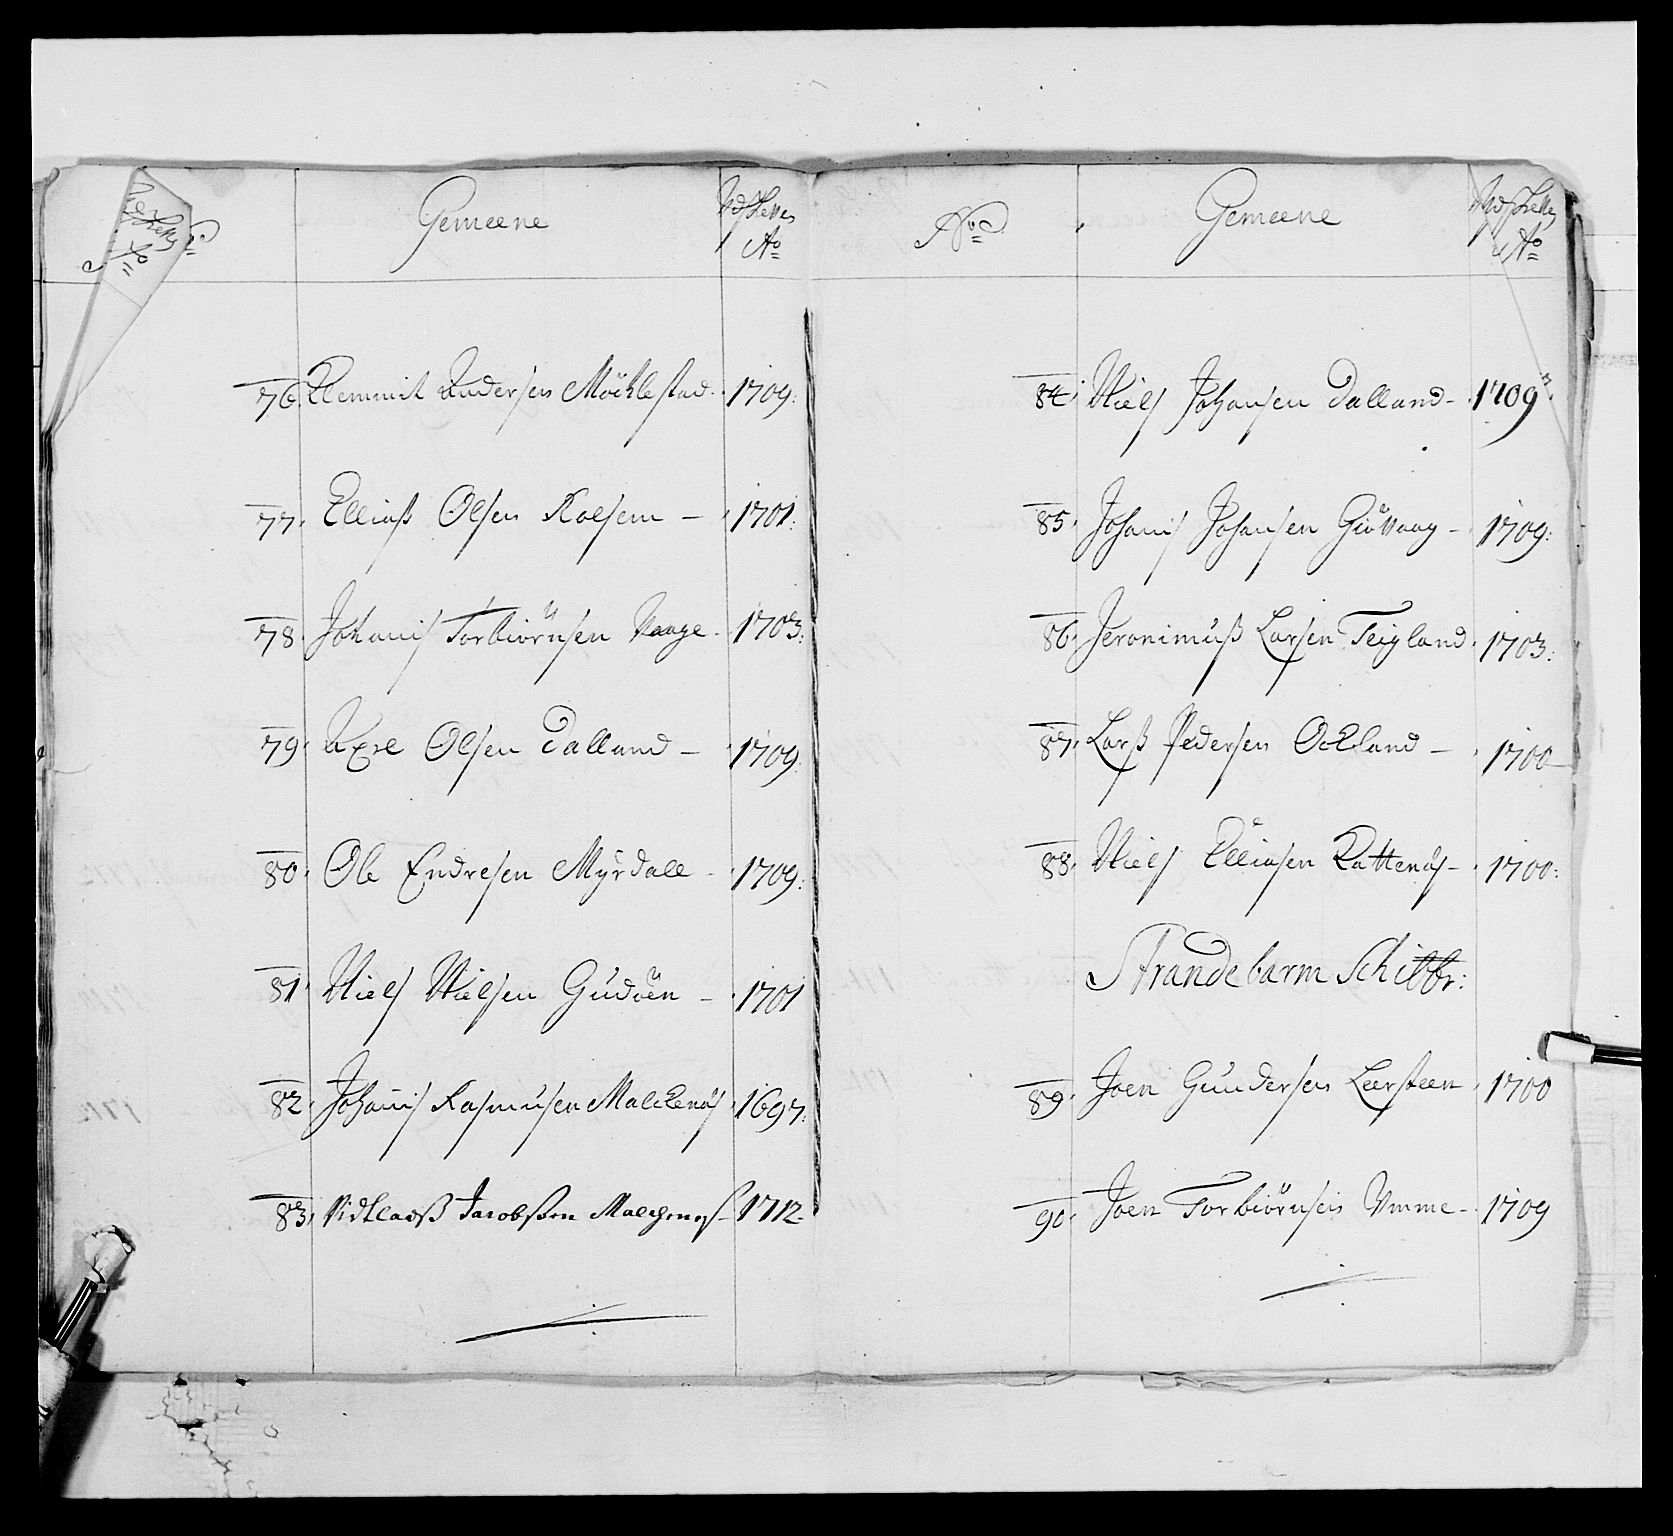 Gemeene Udsætte Ao
76. Clemmit Andersen Möchlestad 1709:
77. Elliaß Olsen Kolsem – 1701:
78. Johanis Torbiörnsen Waage. 1703:
79. Axel Olsen Dalland – 1709.
80. Ole Endresen Myrdall – 1709:
81. Niels Nielsen Gudöen – 1701
82. Johanis Rasmusen Malckenæs 1697:
83. Jacobßen 1712.
No Gemeene Ao
84. Niels Johansen Dalland – 1709
85. Johanis Johansen Giövaag – 1709:
86. Jeronimuß Larsen Teigland 1703:
87. Larß Pedersen Ockland – 1700
88. Niels Elliasen Kattenæs – 1700:
Strandebarm Schibbr:
89. Joen Gundersen Leersteen 1700
90. Joen Torbiörnsen Umme – 1709